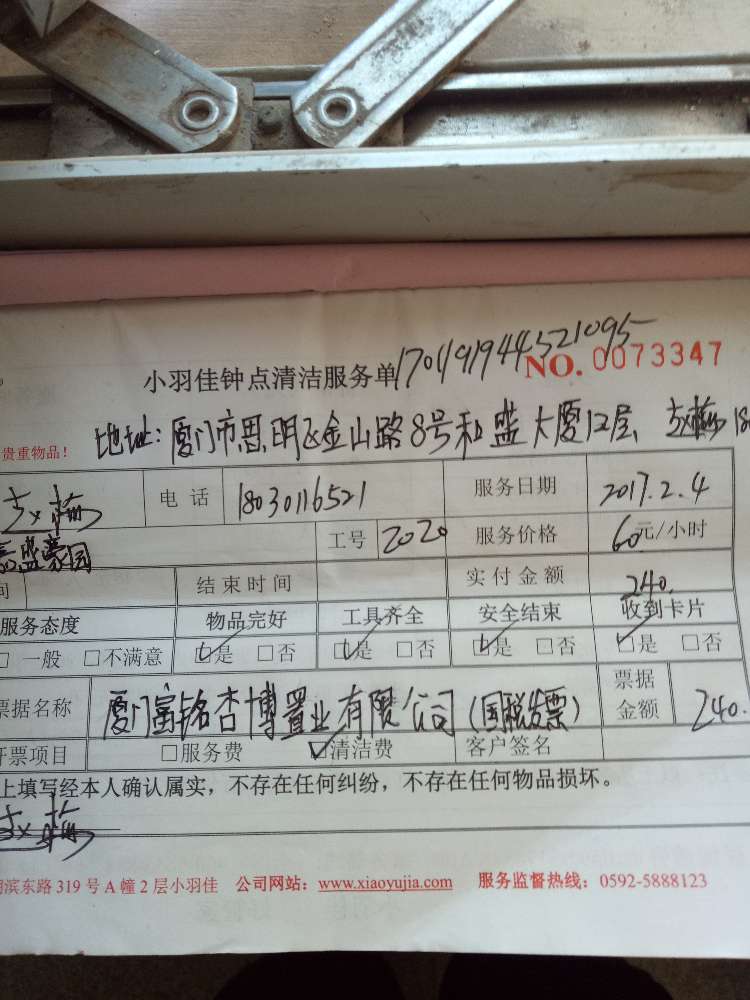 小羽佳钟点清洁服务单 1701919444521095 NO. 0073347
贵重物品！ 地址：厦门市思明区金山路8号和盛大厦12层 赵梅 18
赵梅 电话 18030116521 服务日期 2017.2.4
盛豪园 工号 2020 服务价格 60元/小时
间 结束时间 实付金额 240.
服务态度 物品完好 工具齐全 安全结束 收到卡片
□一般 □不满意 ☑是 □否 ☑是 □否 ☑是 □否 ☑是 □否
票据名称 厦门富铭杏博置业有限公司（国税发票） 票据金额 240.
开票项目 □服务费 ☑清洁费 客户签名
上填写经本人确认属实，不存在任何纠纷，不存在任何物品损坏。
赵梅
滨东路319号A幢2层小羽佳 公司网站：www.xiaoyujia.com 服务监督热线：0592-5888123